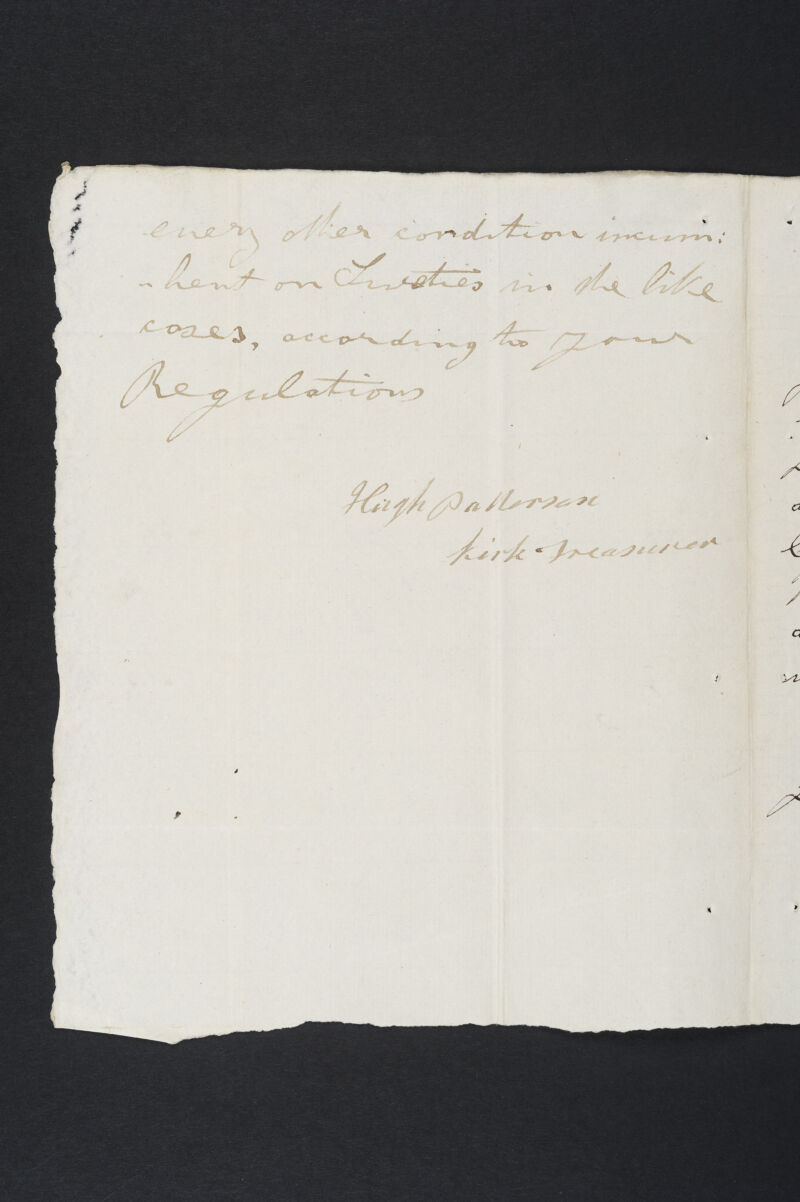 every other condition incum:
-bent on Sureties in the like
cases, according to your
Regulations
Hugh Patterson
Kirk-Treasurer